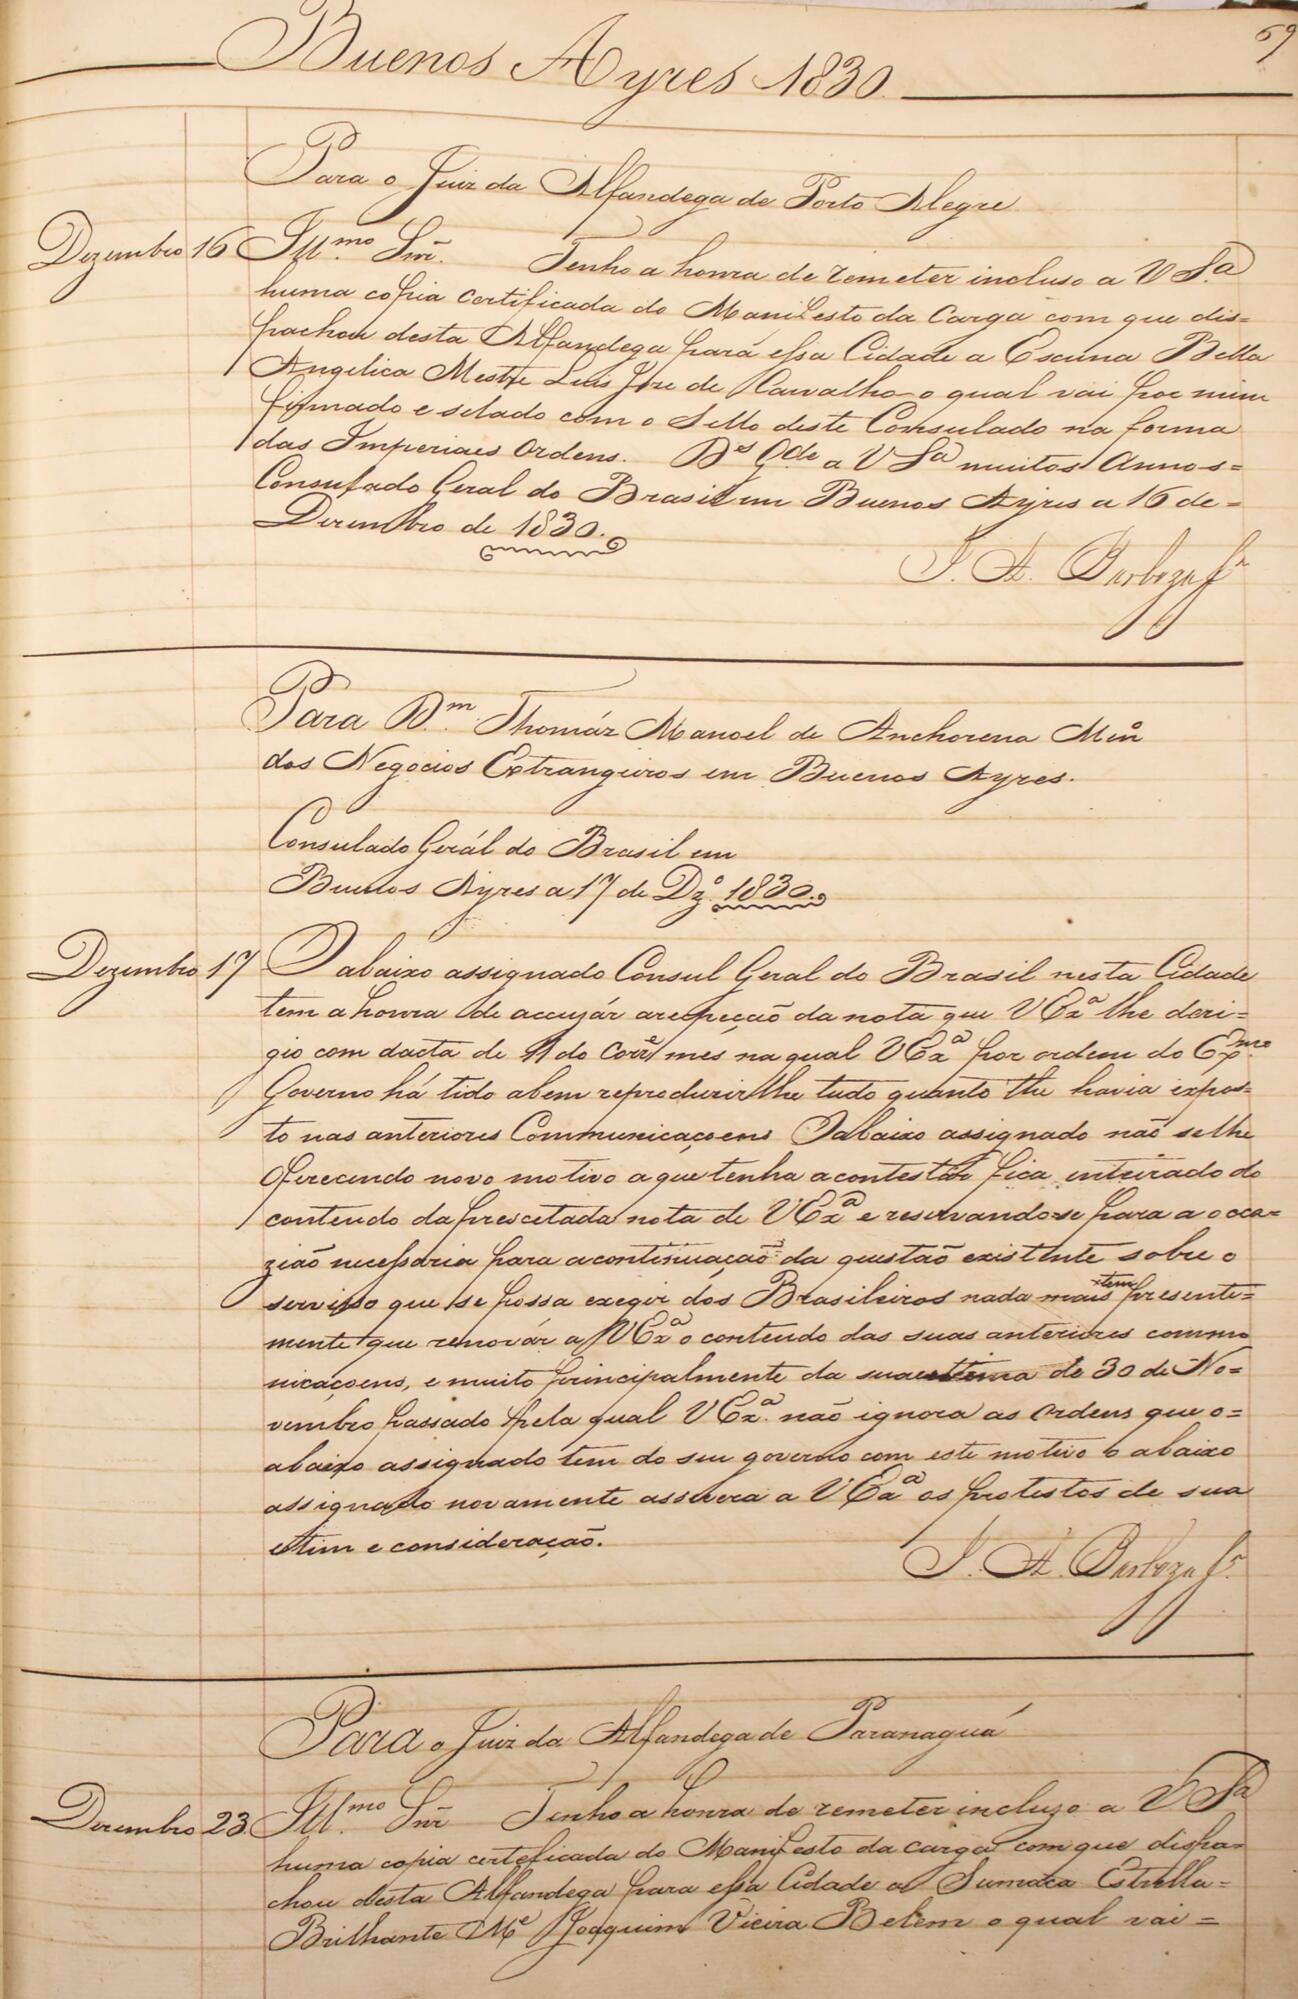 69
Buenos Ayres 1830.
Para o Juiz da Alfandega de Porto Alegre
Dezembro 16 Ill.mo Snr. Tenho a honra de remeter incluso a V S.a
huma copia certificada do Manifesto da Carga com que dis=
pachou desta Alfandega para essa Cidade a Escuna Bella
Angelica Mestre Luis Jose de Carvalho o qual vai por mim
firmado e selado com o Sello deste Consulado na forma
das Imperiaes Ordens. D.s G.de a V S.a muitos Annos=
Consulado Geral do Brasil em Buenos Ayres a 16 de=
Dezembro de 1830.
J. A. Barboza f.a
Para D.m Thomáz Manoel de Anchorena Min.o
dos Negocios Extrangeiros em Buenos Ayres.
Consulado Gerál do Brasil em
Buenos Ayres a 17 de Dz.o 1830.
Dezembro 17 O abaixo assignado Consul Geral do Brasil nesta Cidade
tem a honra de accuzár a recepção da nota que V Ex.a lhe deri=
gio com dacta de 11 do Corr.e més na qual V Ex.a por ordem do Ex.mo
Governo há tido abem reproduzir lhe tudo quanto lhe havia expos=
to nas anteriores Communicaçoens O abaixo assignado não se lhe
oferecendo novo motivo a que tenha a contestár fica inteirado do
contendo da prescetada nota de V Ex.a e reservando-se para a occa=
zião necessaria para a continuação da questão existente sobre o
servisso que se possa exegir dos Brasileiros nada mais tem presente=
mente que renovár a V Ex.a o contendo das suas anteriores commu
nicaçoens, e muito principalmente da sua ultima de 30 de No=
vembro passado pela qual V Ex.a não ignora as Ordens que o=
abaixo assignado tem do seu governo com este motivo o abaixo
assignado novamente assevera a V Ex.a os protestos de sua
estim e consideração.
J. A. Barboza f.a
Para o Juiz da Alfandega de Paranaguá
Dezembro 23 Ill.mo Snr Tenho a honra de remeter incluzo a V S.a
huma copia certeficada do Manifesto da carga com que dispa=
chou desta Alfandega para essa Cidade a Sumaca Estrella=
Brilhante M.e Joaquim Vieira Belem o qual vai=